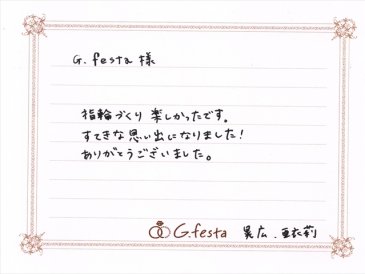 G.festa 様
指輪づくり 楽しかったです。
すてきな思い出になりました!
ありがとうございました。
G.festa 晃広.亜衣莉